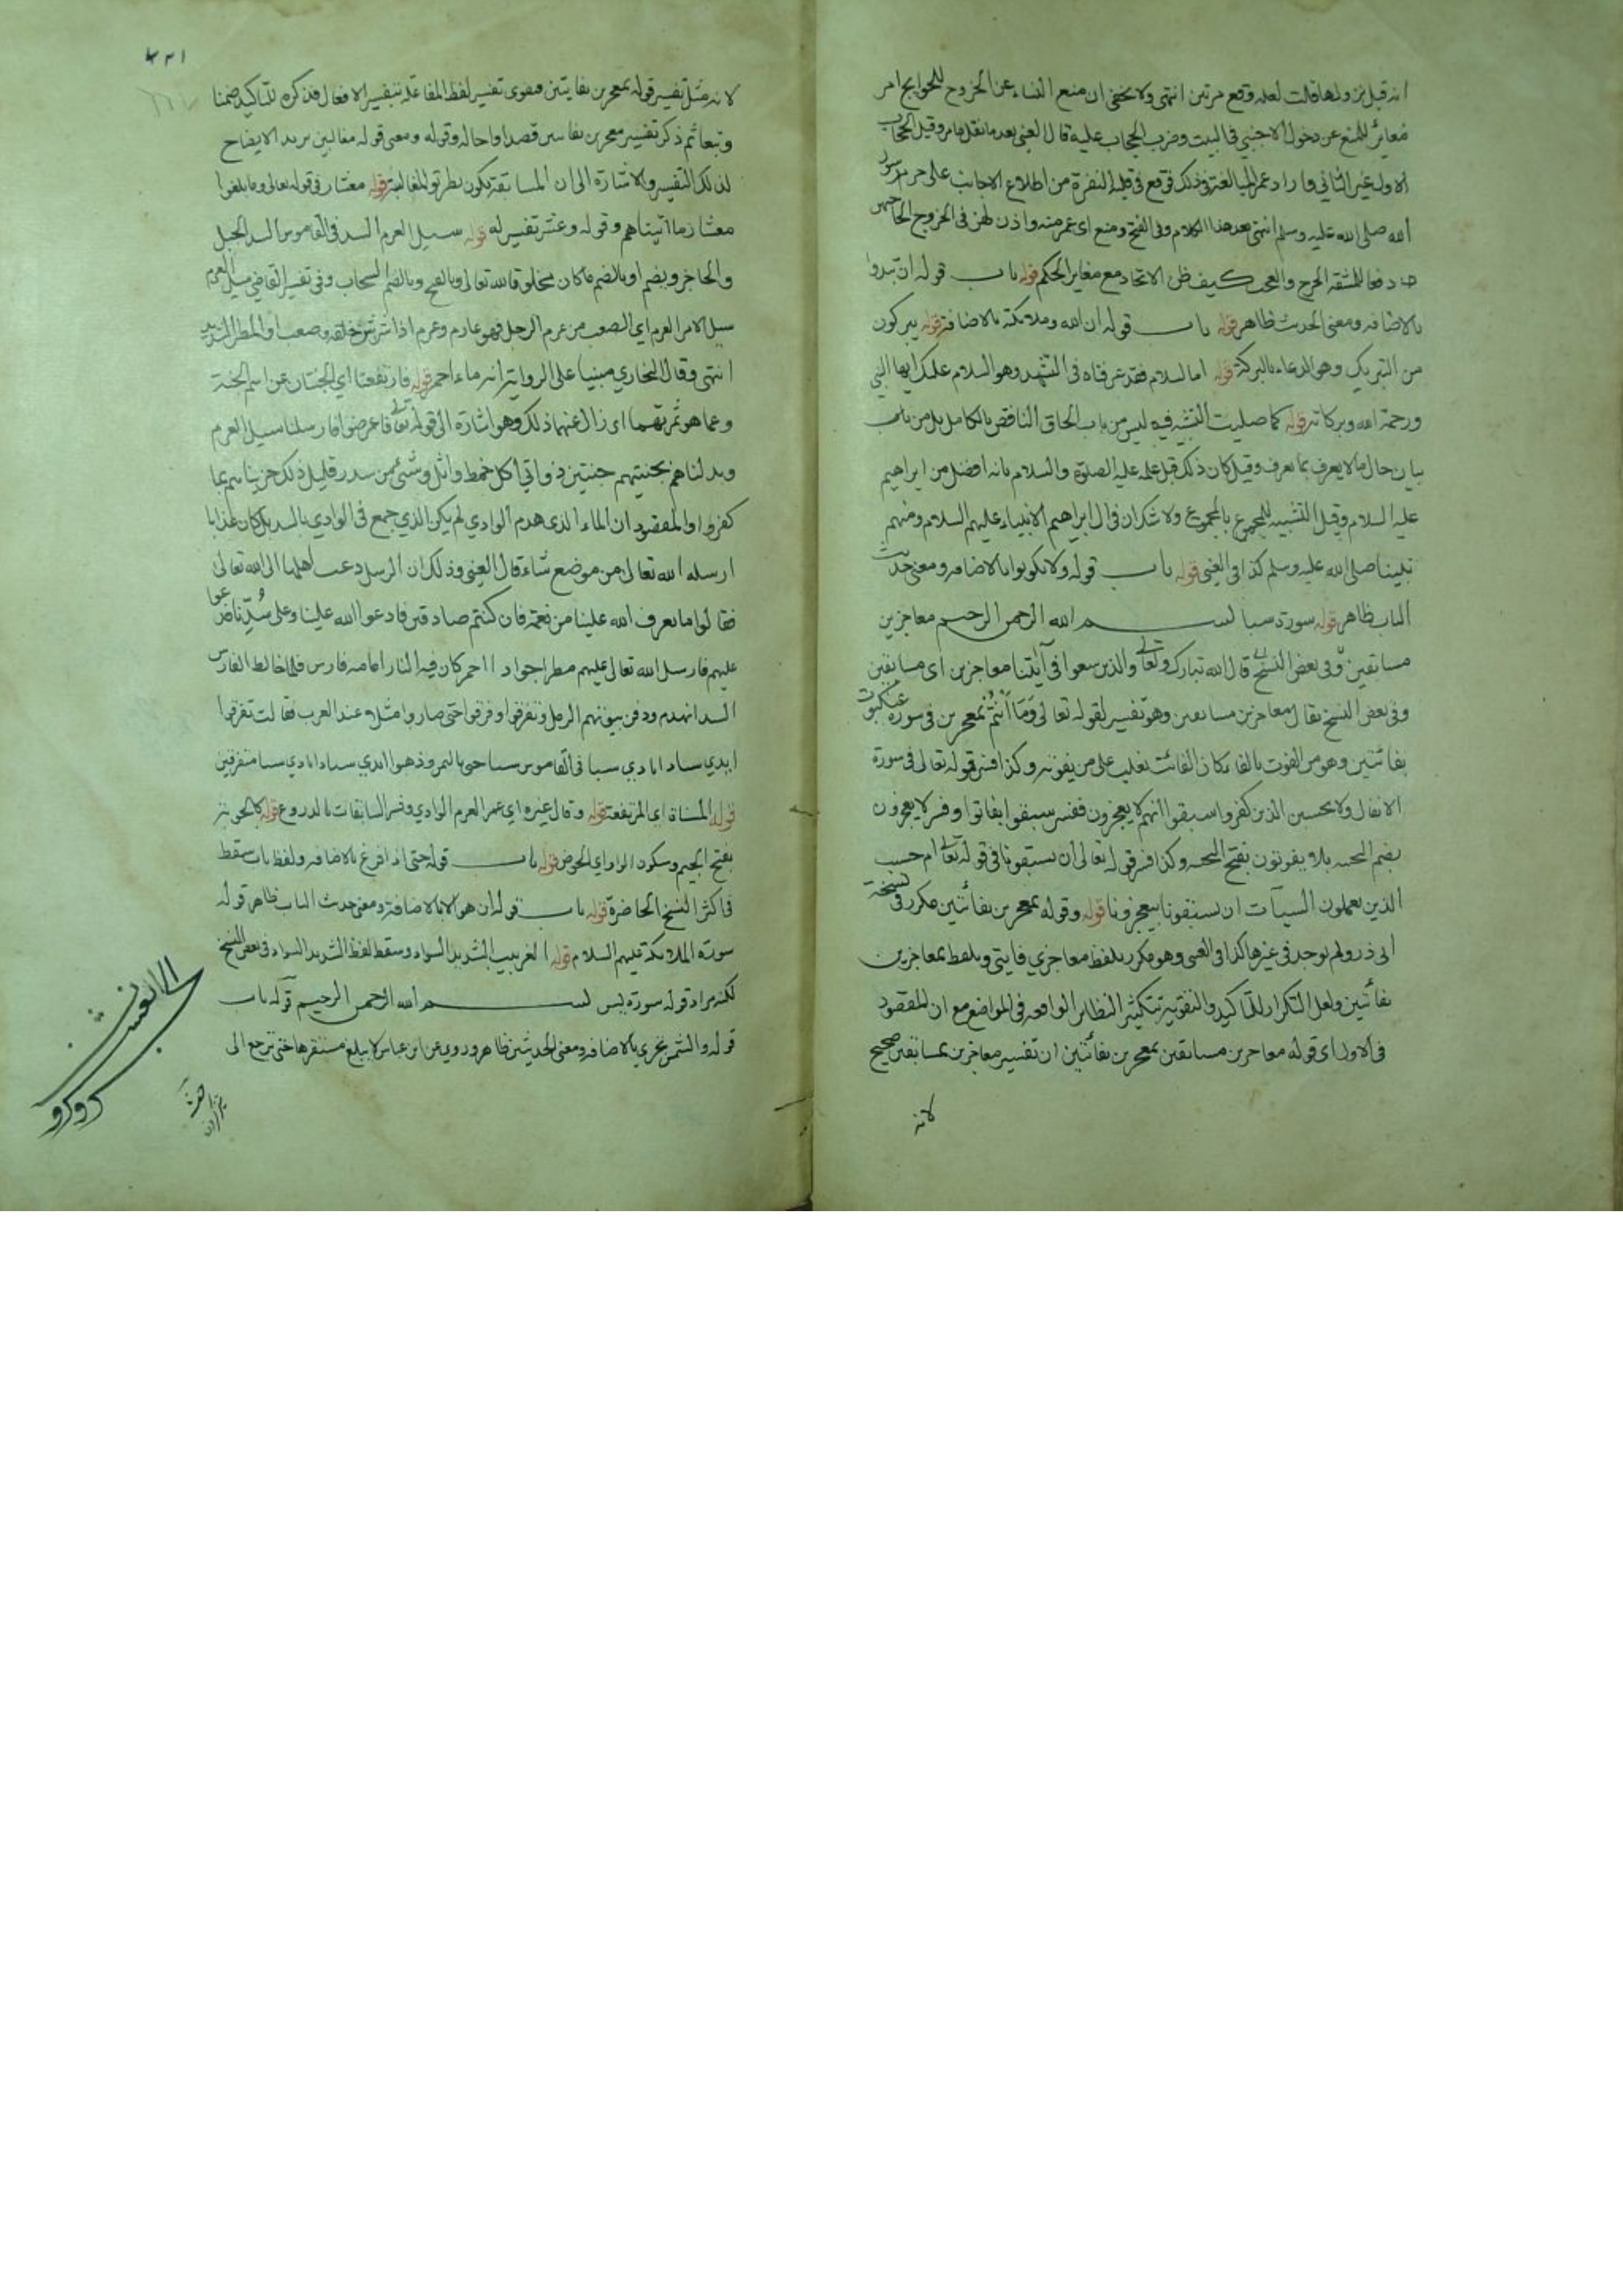 انه قبل نزولها قالت لعله وقع مرتين انتهى ولا يخفى ان منع النساء عن الخروج للحوايج امر
مغائر للمنع عن دخول الاجنبي في البيت وضرب الحجاب عليه قال العيني بعد ما نقل مامر وقيل الحجاب
الاول غير الثاني واراد عمر المبالغة في ذلك فوقع في قلبه النفرة من اطلاع الاجانب على حريم رسول
الله صلى الله عليه وسلم انتهى بعد هذا الكلام وفي الفتح ومنع اي عمر منه واذن لهن في الخروج لحاجتهن
دفعا للمشقة الحرج والعجب كيف ظن الاتحاد مع مغاير الحكم قوله باب قوله ان تبدوا
بالاضافه ومعنى الحديث ظاهر قوله باب قوله ان الله وملائكته بالاضافة قوله يبركون
من التبريك وهو الدعاء بالبركة قوله اما السلام فقد عرفناه في التشهد وهو السلام عليك ايها النبي
ورحمة الله وبركاته قوله كما صليت التشبيه فيه ليس من باب الحاق الناقص بالكامل بل من باب
بيان حال ما لا يعرف بما يعرف وقيل كان ذلك قبل علمه عليه الصلوة والسلام بانه افضل من ابراهيم
عليه السلام وقيل التشبيه للمجموع بالمجموع ولا شك ان في ال ابراهيم الانبياء عليهم السلام ومنهم
نبينا صلى الله عليه وسلم كذا في العيني قوله باب قوله ولا تكونوا بالاضافه ومعنى حديث
الباب ظاهر قوله سورة سبا بسم الله الرحمن الرحيم معاجزين
مسابقين وفي بعض النسخ قال الله تبارك وتعالى والذين سعوا في آياتنا معاجزين اى مسابقين
وفي بعض النسخ يقال معاجزين مسابقين وهو تفسير لقوله تعالى وَمَا أَنْتُمْ بمعجزين في سورة عنكبوت
بفائتين وهو من الفوت بالفاء كان الفائت يغلب على من يفوته وكذا فسر قوله تعالى في سورة
الانفال ولا يحسبن الذين كفروا سبقوا انهم لا يعجزون ففسر سبقوا بفاتوا وفسر لا يعجزون
بلا يفوتون بفتح وكذا فسر قوله تعالى ان يسبقونا في قوله تعالى ام حسب
الذين يعملون السيآت ان يسبقونا بيعجزونا قوله وقوله بمعجزين بفائتين مكرر في نسخة
ابى ذر ولم يوجد في غيرها كذا في العيني وهو مكرر بلفظ معاجزي فايتى وبلفظ بمعاجزين
بفائتين ولعل التكرار للتاكيد والتقوية بتكثير النظائر الواقعه في المواضع مع ان المقصود
في الاول اى قوله معاجزين مسابقين بمعجزين بفائتين ان تفسير معاجزين بمسابقين صحيح
لانه
لانه مثل تفسير قوله بمعجزين بفايتين تفسير لفظ المفاعلة بتفسير الافعال فذكره للتاكيد ضمنا
وتبعا ثم ذكر تفسير معجزين قصدا وقوله ومعنى قوله مغالبين يريد الايضاح
لذلك التفسير والاشارة الى ان المسابقة تكون بطريق المغالبة قوله معشار في قوله تعالى وما بلغوا
معشار ما آتيناهم وقوله وعشر تفسير له قوله سيل العرم السد في القاموس السد الجبل
والحاجز ويضم او بالضم ما كان مخلوقا لله تعالى وبالفتح وبالضم السحاب وفي تفسير القاضي سيل العرم
سيل الامر العرم اي الصعب من عرم الرجل فهو عارم وعرم اذا شرس خلقه وصعب او المطر الشديد
انتهى وقال البخاري مبنيا على الرواية انه ماء احمر قوله فارتفعتا اي الجنتان عن اسم الجنة
وعما هو ثمرتهما اى زال عنهما ذلك وهو اشارة الى قوله تعالى فاعرضوا فارسلنا سيل العرم
وبدلناهم بجنتيهم جنتين ذواتي اكل خمط واثل وشئ من سدر قليل ذلك جزيناهم بما
كفروا والمقصود ان الماء الذى هدم الوادي لم يكن الذي جمع في الوادي بالسد بل كان عذابا
ارسله الله تعالى من موضع شاء قال العيني وذلك ان الرسل دعت اهلها الى الله تعالى
فقالوا ما نعرف الله علينا من نعمة فان كنتم صادقين فادعوا الله علينا وعلى سُدّنا فدعوا
عليهم فارسل الله تعالى عليهم مطرا جوادا احمر كان فيه النار امامه فارس فلما خالط الفارس
السد انهدم ودفن بيوتهم الرمل وتفرقوا ومزقوا حتى صاروا مثلا عند العرب فقالت تفرقوا
ايدي سبا وايادي سبا في القاموس ذهبوا ايدي سبا وايادي سبا متفرقين
قوله المسناة اى المرتفعة قوله وقال غيره اي غير العرم الوادي وفسر السابقات بالدروع قوله كالجوبة
بفتح الجيم وسكون الواو اي الحوض قوله باب قوله حتى اذا فزع بالاضافه ولفظ باب سقط
في اكثر النسخ الحاضرة قوله باب قوله ان هو الا بالاضافة ومعنى حديث الباب ظاهر قوله
سورة الملائكة عليهم السلام قوله الغربيب الشديد السواد وسقط لفظ الشديد السواد في بعض النسخ
لكنه مراد قوله سورة يس بسم الله الرحمن الرحيم قوله باب
قوله والشمس تجري بالاضافه ومعنى الحديثين ظاهر وروي عن ابن عباس لا يبلغ مستقرها حتى ترجع الى